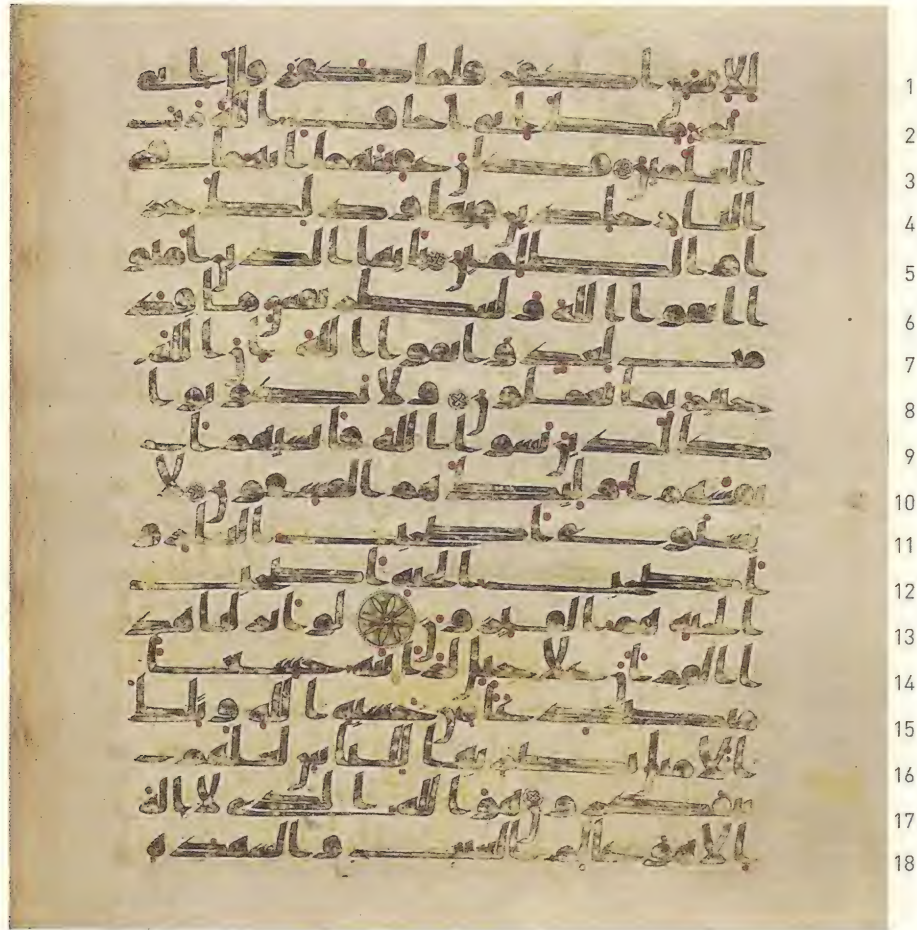 للانسن اكفر فلما كفر قال انى 1
برى منك انى اخاف الله رب 2
العلمين فكان عقبتهما انهما فى 3
النار خلدين فيها وذلك جز 4
اوا الظلمين يايها الذين امنو 5
ا اتقوا الله ولتنظر نفس ما قد 6
مت لغد واتقوا الله ان الله 7
خبير بما تعملون ولا تكونوا 8
كالذين نسوا الله فانسيهم ا 9
نفسهم اوليك هم الفسقون لا 10
يستوى اصحب النار و 11
اصحب الجنة اصحب 12
الجنة هم الفايزون لو انزلنا هذ 13
ا القران على جبل لرايته خشعا 14
متصدعا من خشية الله وتلك 15
الامثل نضربها للناس لعلهم 16
يتفكرون هو الله الذى لا اله 17
الا هو علم الغيب والشهدة ه 18